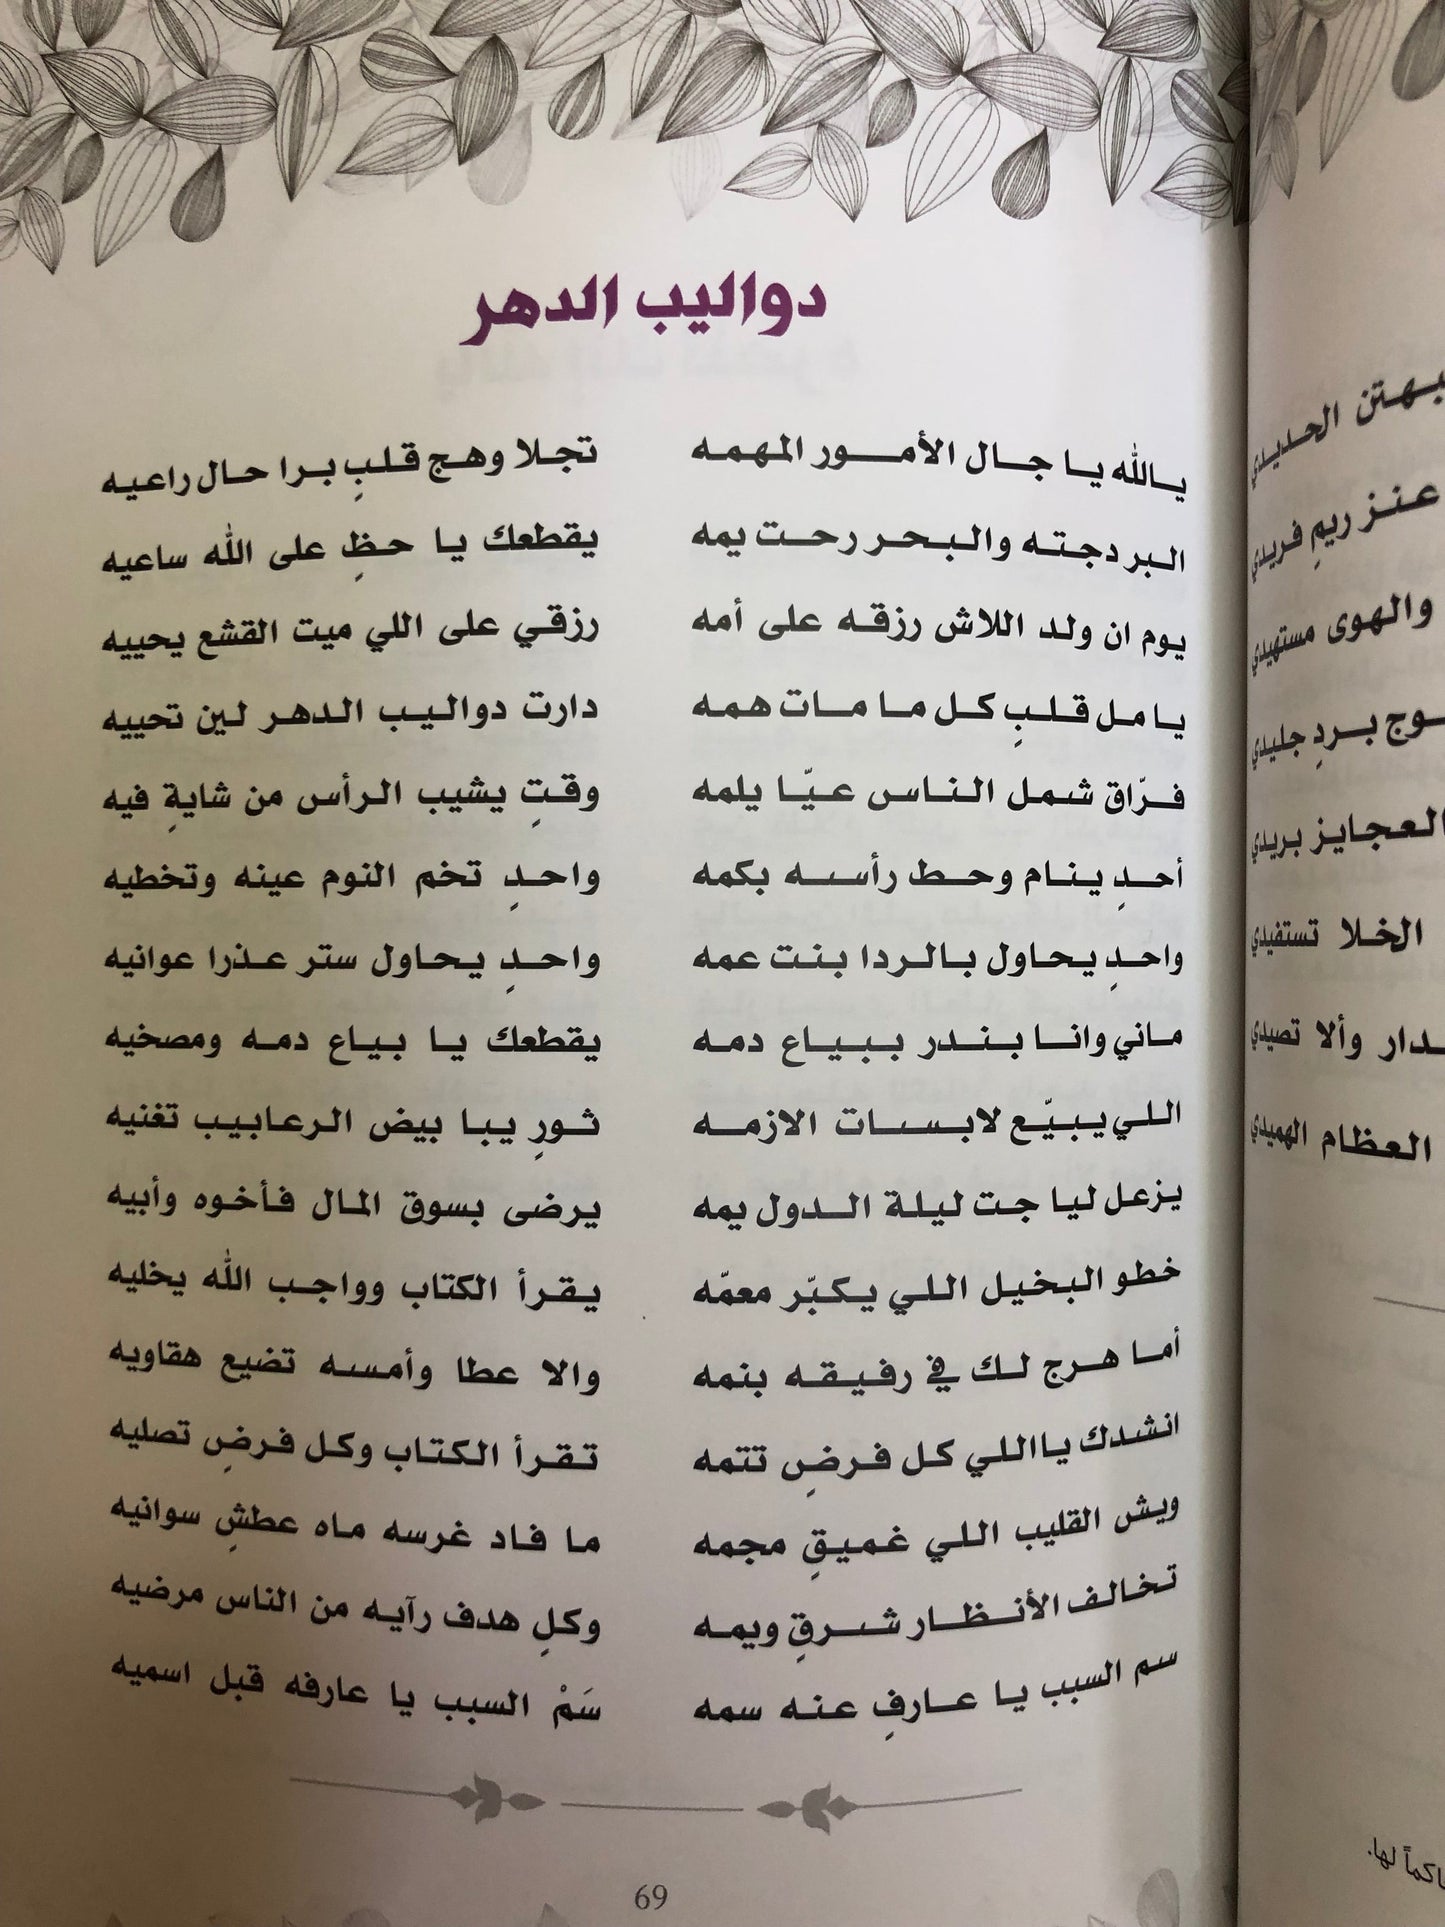 دواليب الدهر
يالله يا جال الأمور المهمه تجلا وهج قلبٍ برا حال راعيه
البر دجته والبحر رحت يمه يقطعك يا حظٍ على الله ساعيه
يوم ان ولد اللاش رزقه على أمه رزقي على اللي ميت القشع يحييه
يا مل قلبٍ كل ما مات همه دارت دواليب الدهر لين تحييه
فرّاق شمل الناس عيّا يلمه وقتٍ يشيب الرأس من شايةٍ فيه
أحدٍ ينام وحط رأسه بكمه واحدٍ تخم النوم عينه وتخطيه
واحدٍ يحاول بالردا بنت عمه واحدٍ يحاول ستر عذرا عوانيه
ماني وانا بندر ببياع دمه يقطعك يا بياع دمه ومصخيه
اللي يبيّع لابسات الازمه ثورٍ يبا بيض الرعابيب تغنيه
يزعل ليا جت ليلة الدول يمه يرضى بسوق المال فأخوه وأبيه
خطو البخيل اللي يكبّر معمّه يقرأ الكتاب وواجب الله يخليه
أما هرج لك في رفيقه بنمه والا عطا وأمسه تضيع هقاويه
انشدك يااللي كل فرضٍ تتمه تقرأ الكتاب وكل فرضٍ تصليه
ويش القليب اللي غميقٍ مجمه ما فاد غرسه ماه عطشٍ سوانيه
تخالف الأنظار شرقٍ ويمه وكلٍ هدف رآيه من الناس مرضيه
سم السبب يا عارفٍ عنه سمه سَمْ السبب يا عارفه قبل اسميه
69
بهتن الحديدي
عنز ريمٍ فريدي
والهوى مستهيدي
بردٍ جليدي
العجايز بريدي
الخلا تستفيدي
وألا تصيدي
العظام الهميدي
لها.